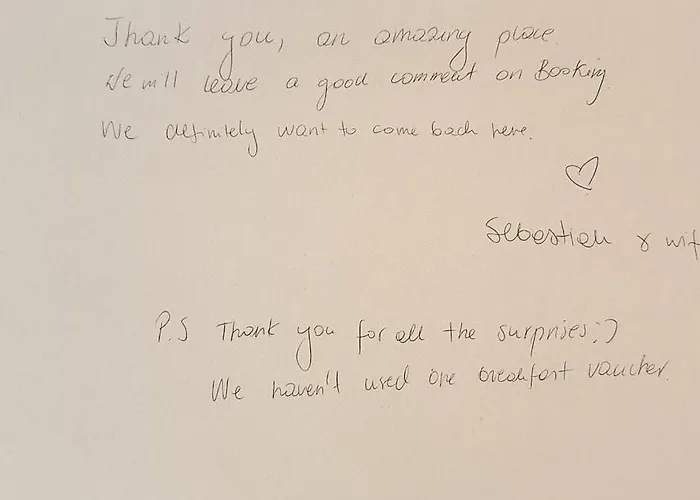 Thank you, an amazing place.
We will leave a good comment on Booking
We definitely want to come back here.
♡
Sebastian & wif
P.S Thank you for all the surprises :)
We haven't used one breakfast voucher.